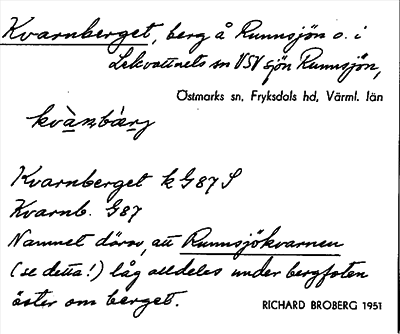 Kvarnberget, berg å Runnsjön o. i
Lekvattnets sn VSV sjön Runnsjön,
Östmarks sn, Fryksdals hd, Värml. län
kvà̀nbæ̀rj
Kvarnberget k G87 S
Kvarnb. G87
Namnet därav, att Runnsjökvarnen
(se detta!) låg alldeles under bergfoten
öster om berget.
RICHARD BROBERG 1951